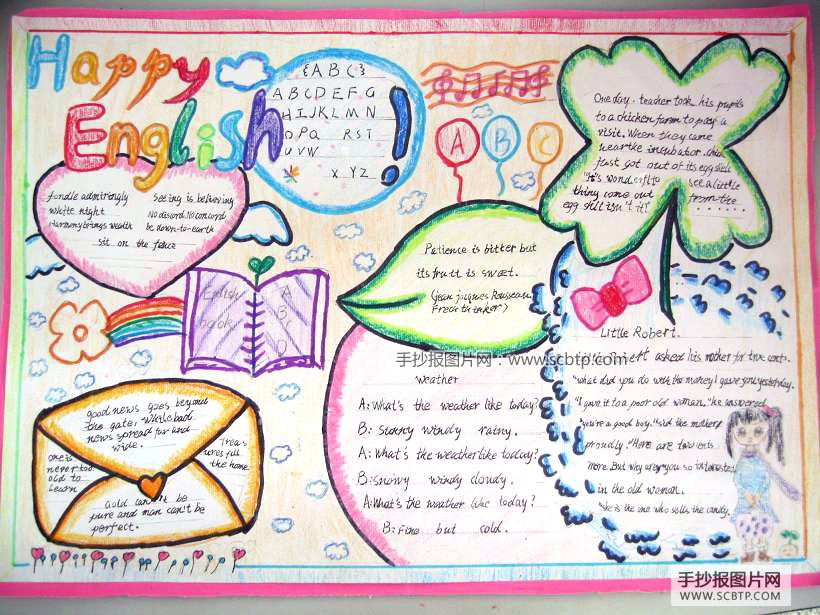 Happy
English!
{ABC}
A B C D E F G
H I J K L M N
O P Q R S T
U V W
X Y Z
A B C
One day. teacher took his pupils
to a chicken farm to pay a
visit. When they came
near the incubator.
just got out of its egg shell
see a little
thing come out from the
egg shell isn't it!
......
fondle admiringly
white night
Harmony brings wealth
seeing is believing
No discord. No concord
be down-to-earth
sit on the fence
Patience is bitter but
its fruit is sweet.
(Jean Jacques Rousseau.
French thinker)
English
book
A
B
C
D
手抄报图片网：www.scbtp.com
weather
A: What's the weather like today?
B: sunny windy rainy.
A: What's the weather like today?
B: snowy windy cloudy.
A: What's the weather like today?
B: Fine but cold.
Little Robert.
asked his mother for two cents.
"what did you do with the money I gave you yesterday.
"I gave it to a poor old woman." he answered
"you're a good boy." said the mother
proudly. "Here are two cents
more. But why are you so interested
in the old woman.
"she is the one who sells the candy.
good news goes beyond
the gate, while bad
news spread far and
wide.
one is
never too
old to
learn
the home
Gold can't be
pure and man can't be
perfect.
手抄报图片网
WWW.SCBTP.COM